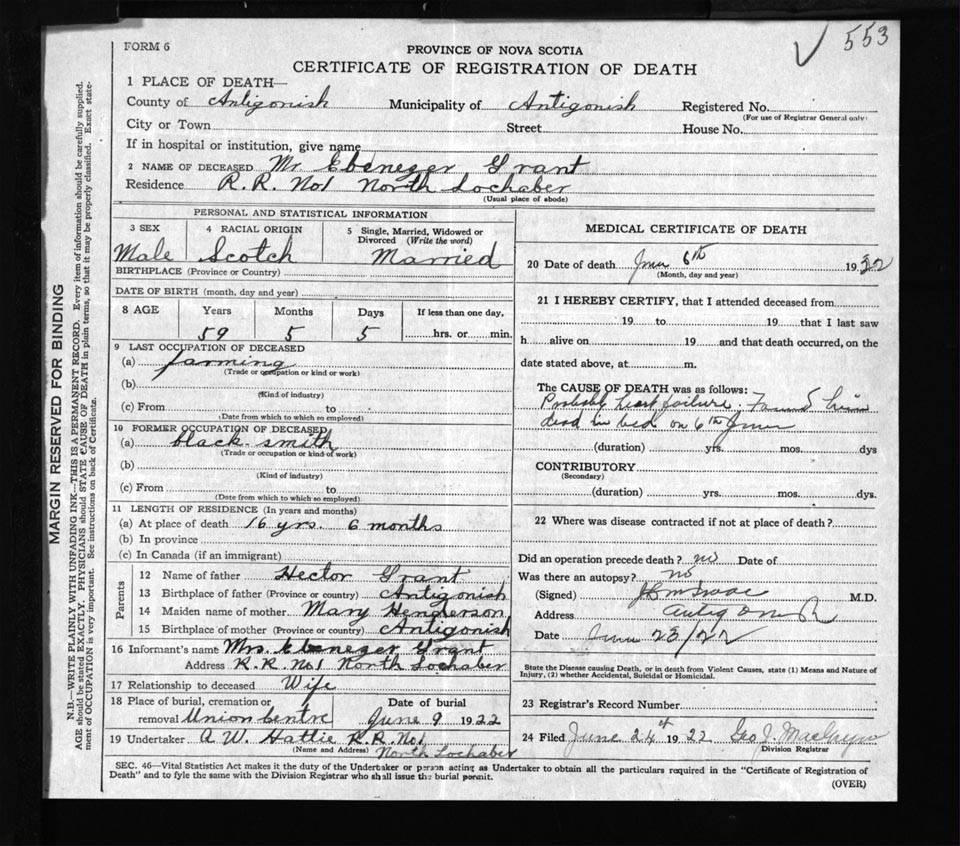 553
FORM 6
PROVINCE OF NOVA SCOTIA
CERTIFICATE OF REGISTRATION OF DEATH
1 PLACE OF DEATH—
County of Antigonish Municipality of Antigonish Registered No.
(For use of Registrar General only)
City or Town Street House No.
If in hospital or institution, give name
2 NAME OF DECEASED Mr. Ebenezer Grant
Residence R.R. No1 North Lochaber
(Usual place of abode)
PERSONAL AND STATISTICAL INFORMATION
3 SEX 4 RACIAL ORIGIN 5 Single, Married, Widowed or Divorced (Write the word)
Male Scotch Married
BIRTHPLACE (Province or Country)
DATE OF BIRTH (month, day and year)
8 AGE Years Months Days If less than one day,
59 5 5 hrs. or min.
9 LAST OCCUPATION OF DECEASED
(a) farming
(Trade or occupation or kind or work)
(b)
(Kind of industry)
(c) From to
(Date from which to which so employed)
10 FORMER OCCUPATION OF DECEASED
(a) black smith
(Trade or occupation or kind of work)
(b)
(Kind of industry)
(c) From to
(Date from which to which so employed)
11 LENGTH OF RESIDENCE (In years and months)
(a) At place of death 16 yrs. 6 months
(b) In province
(c) In Canada (if an immigrant)
Parents
12 Name of father Hector Grant
13 Birthplace of father (Province or country) Antigonish
14 Maiden name of mother Mary Henderson
15 Birthplace of mother (Province or country) Antigonish
16 Informant's name Mrs. Ebenezer Grant
Address R.R. No1 North Lochaber
17 Relationship to deceased Wife
18 Place of burial, cremation or Date of burial
removal Union Centre June 9 1922
19 Undertaker A. W. Hattie R.R. No1
(Name and Address) North Lochaber
MEDICAL CERTIFICATE OF DEATH
20 Date of death June 6th 1922
(Month, day and year)
21 I HEREBY CERTIFY, that I attended deceased from
19 to 19 that I last saw
h alive on 19 and that death occurred, on the
date stated above, at m.
The CAUSE OF DEATH was as follows:
Probably heart failure. Found him
dead in bed on 6th June
(duration) yrs. mos. dys
CONTRIBUTORY
(Secondary)
(duration) yrs. mos. dys.
22 Where was disease contracted if not at place of death?
Did an operation precede death? no Date of
Was there an autopsy? no
(Signed) M.D.
Address Antigonish
Date June 23/22
State the Disease causing Death, or in death from Violent Causes, state (1) Means and Nature of
Injury, (2) whether Accidental, Suicidal or Homicidal.
23 Registrar's Record Number
24 Filed June 24 1922 Geo. J. MacGregor
Division Registrar
SEC. 46—Vital Statistics Act makes it the duty of the Undertaker or person acting as Undertaker to obtain all the particulars required in the "Certificate of Registration of
Death" and to fyle the same with the Division Registrar who shall issue the burial permit.
(OVER)
MARGIN RESERVED FOR BINDING
N.B.—WRITE PLAINLY WITH UNFADING INK—THIS IS A PERMANENT RECORD. Every item of information should be carefully supplied.
AGE should be stated EXACTLY. PHYSICIANS should STATE CAUSE OF DEATH in plain terms, so that it may be properly classified. Exact state-
ment of OCCUPATION is very important. See instructions on back of Certificate.